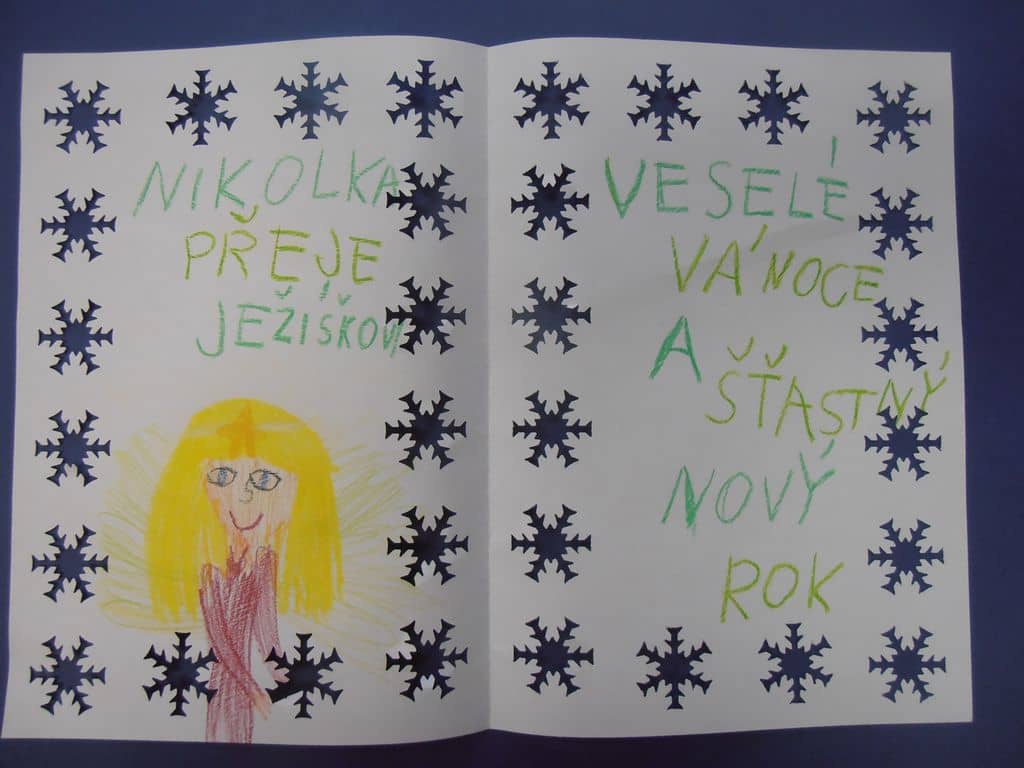 NIKOLKA
PŘEJE
JEŽIŠKOVI
VESELÉ
VÁNOCE
A
ŠŤASTNÝ
NOVÝ
ROK